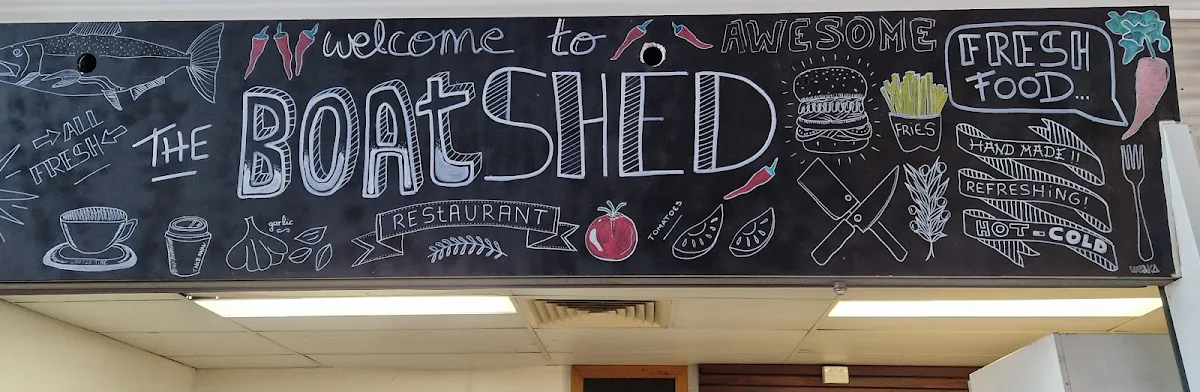 welcome to
THE BOAtSHED
RESTAURANT
ALL
FRESH
garlic
TAKE AWAY
TOMATOES
AWESOME
FRIES
FRESH
FOOD...
HAND MADE!!
REFRESHING!
HOT-COLD